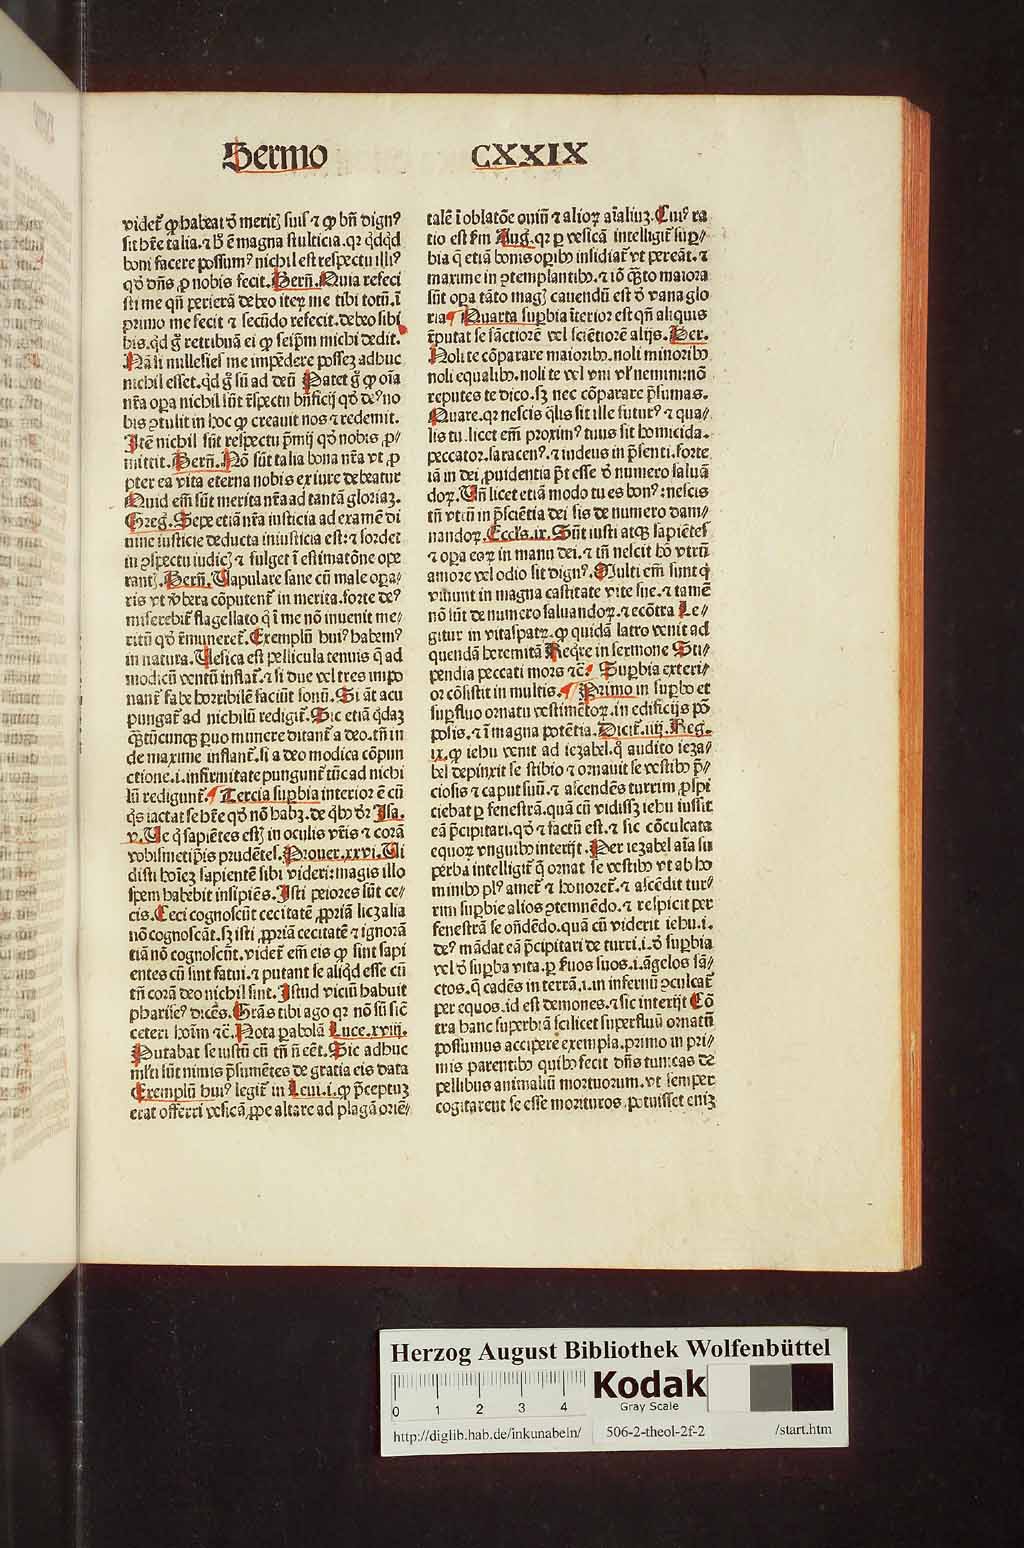 Sermo CXXIX
videt̄ ꝙ habeat d̄ meritꝭ suis ⁊ ꝙ bn̄ dignꝰ
sit hr̄e talia. ⁊ hͦ ē magna stulticia. qꝛ qͥdqͥd
boni facere possumꝰ nichil est respectu illiꝰ
qd̓ dn̄s ꝓ nobis fecit. Bern̄. Quia refeci
sti me qn̄ perierā debeo iteꝝ me tibi totū. ī
primo me fecit ⁊ secūdo refecit. debeo sibi
bis. qd̓ gͦ retribuā ei ꝙ seip̄m michi dedit.
Nā si millesies me impēdere posseꝫ adhuc
nichil esset. qd̓ gͦ sū ad deū Patet gͦ ꝙ oīa
nr̄a oꝑa nichil sūt ī respectu bn̄ficij qd̓ deꝰ no
bis ꝯtulit in hoc ꝙ creauit nos ⁊ redemit.
Itē nichil sūt respectu p̄mij qd̓ nobis ꝓ-
mittit. Bern̄. Nō sūt talia bona nr̄a vt ꝓ
pter ea vita eterna nobis ex iure debeatur
Quid em̄ sūt merita nr̄a ad tantā gloriaꝫ.
Greg̓. Sepe etiā nr̄a iusticia ad examē di
uine iusticie deducta iniusticia est: ⁊ sordet
in ꝯspectu iudicꝭ ⁊ fulget ī estimatōne ope
rantꝭ. Bern̄. Vapulare sane cū male oꝑa-
ris vt v̓bera cōputent̄ in merita. forte deꝰ
miserebit̄ flagellato qͥ ī me nō inuenit me-
ritū qd̓ remuneret̄. Exemplū huiꝰ habemꝰ
in natura. Vesica est pellicula tenuis q̄ ad
modicū ventū inflat̄. ⁊ si due vel tres impo
nant̄ fabe horribilē faciūt sonū. Si āt acu
pungat̄ ad nichilū redigit̄. Sic etiā qͥdaꝫ
qn̄tūcunqꝫ ꝑ uo munere ditant̄ a deo. tn̄ in
de maxime inflant̄. si a deo modica cōpun
ctione .i. infirmitate pungunt̄ tūc ad nichi
lū redigunt̄. ¶ Tercia suꝑbia interior ē cū
qͥs iactat se hr̄e qd̓ nō habꝫ. de qͥbꝰ dr̄ Isa.
v. Ue qͥ sapiētes estꝭ in oculis vr̄is ⁊ corā
vobismetip̄is prudētes. Prouer. xxvi. Ui
disti hoīeꝫ sapientē sibi videri: magis illo
spem habebit insipiēs. Isti peiores sūt ce-
cis. Ceci cognoscūt cecitatē ꝓpriā liczͭ alia
nō cognoscāt. sꝫ isti ꝓpriā cecitatē ⁊ ignorā
tiā nō cognoscūt. videt̄ em̄ eis ꝙ sint sapi
entes cū sint fatui. ⁊ putant se aliqͥd esse cū
tn̄ corā deo nichil sint. Istud viciū habuit
phariseꝰ dicēs. Grās tibi ago qꝛ nō sū sic̄
ceteri hoīm ⁊c̄. Nota ꝑabolā Luce. xviij.
Putabat se iustū cū tn̄ nō eēt. Sic adhuc
ml̓ti sūt nimis p̄sumētes de gratia eis data
Exemplū huiꝰ legit̄ in Leui. i. ꝙ p̄ceptuꝫ
erat offerri vesicā ꝓpe altare ad plagā oriē-
talē ī oblatōe ouiū ⁊ alioꝝ aīaliuꝫ. Cuiꝰ ra
tio est s̄m Aug. qꝛ ꝑ vesicā intelligit̄ suꝑ-
bia q̄ etiā bonis oꝑibꝰ insidiat̄ vt pereāt. ⁊
maxime in ꝯtemplantibꝰ. ⁊ iō qn̄to maiora
sūt oꝑa tāto magꝭ cauendū est d̄ vana glo
ria ¶ Quarta suꝑbia īterior est qn̄ aliquis
reputat se sāctiorē vel sciētiorē alijs. Ber.
Noli te cōparare maioribꝰ. noli minoribꝰ
noli equalibꝰ. noli te vel vni vl̓ nemini: nō
reputes te dico. sꝫ nec cōparare p̄sumas.
Quare. qꝛ nescis qͣlis sit ille futurꝰ ⁊ qua-
lis tu. licet em̄ proximꝰ tuus sit homicida.
peccator. saracenꝰ. ⁊ iudeus in p̄senti. forte
iā in dei ꝓuidentia pt̄ esse d̄ numero saluā
doꝝ. Vn̄ licet etiā modo tu es bonꝰ: nescis
tn̄ vtrū in p̄sciētia dei sis de numero dam-
nandoꝝ. Eccl̓s. ix. Sūt iusti atqꝫ sapiētes
⁊ oꝑa eoꝝ in manu dei. ⁊ tn̄ nescit hō vtrū
amore vel odio sit dignꝰ. Multi em̄ sunt qͥ
viuunt in magna castitate vite sue. ⁊ tamē
nō sūt de numero saluandoꝝ. ⁊ ecōtra Le-
gitur in vitaspatꝝ. ꝙ quidā latro venit ad
quendā heremitā Reqͥre in sermone Sti-
pendia peccati mors ⁊c̄. ¶ Suꝑbia exteri-
or cōsistit in multis. ¶ Primo in suꝑbo et
suꝑfluo ornatu vestimētoꝝ. in edificijs pō
posis. ⁊ ī magna potētia. Dicit̄. iiij. Reg.
ix. ꝙ iehu venit ad iezabel. q̄ audito ieza-
bel depinxit se stibio ⁊ ornauit se vestibꝰ p̄-
ciosis ⁊ caput suū. ⁊ ascendēs turrim ꝓspi
ciebat ꝑ fenestrā. quā cū vidissꝫ iehu iussit
eā p̄cipitari. qd̓ ⁊ factū est. ⁊ sic cōculcata
equoꝝ vnguibꝰ interijt. Per iezabel aīa su
perba intelligit̄ q̄ ornat se vestibꝰ vt ab ho
minibꝰ plꝰ amet̄ ⁊ honoret̄. ⁊ ascēdit tur-
rim suꝑbie alios ꝯtemnēdo. ⁊ respicit per
fenestrā se on̄dēdo. quā cū viderit iehu .i.
deꝰ mādat eā p̄cipitari de turri .i. d̄ suꝑbia
vel d̄ suꝑba vita. ꝑ s̓uos suos .i. āgelos sā-
ctos. q̄ cadēs in terrā .i. in infernū ꝯculcat̄
per equos. id est demones. ⁊ sic interijt Cō
tra hanc superbiā scilicet superfluū ornatū
possumus accipere exempla. primo in pri-
mis parentibꝰ quibꝰ fecit dn̄s tunicas de
pellibus animaliū mortuorum. vt semper
cogitarent se esse morituros. potuisset enīꝫ
Herzog August Bibliothek Wolfenbüttel
0 1 2 3 4
Kodak
Gray Scale
http://diglib.hab.de/inkunabeln/ 506-2-theol-2f-2 /start.htm